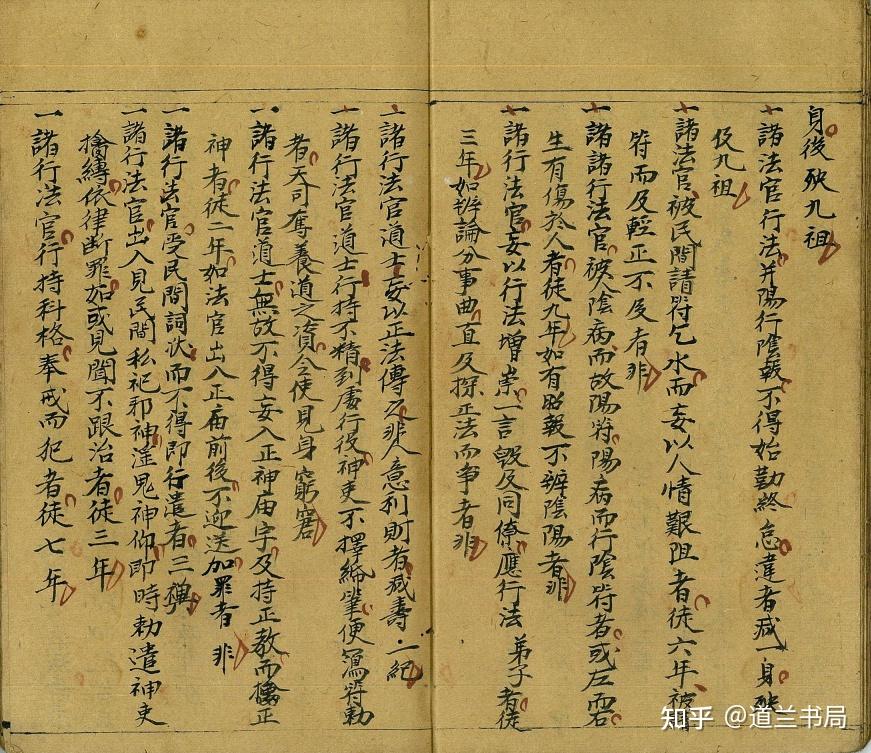 身後殃九祖
一諸法官行法并陽行陰報不得始勤終怠違者减一身殃
及九祖
一諸法官被民間請符乞水而妄以人情艱阻者徒六年被
符而及輕正不及者非
一諸諸行法官被人陰病而故陽符陽病而行陰符者或左
生有傷於人者徒九年如有昭報不辨陰陽者非
一諸行法官妄以行法增崇一言毁及同僚應行法弟子者徒
三年如辨論分事曲直及探正法而争者非
一諸行法官道士妄以正法傳之非人意利財者减壽一紀
一諸行法官道士行持不精到處行役神吏不擇便寫符勅
者天司奪養道之資令使見身窮窘
一諸行法官道士無故不得妄入正神庙宇及持正教而擒正
神者徒二年如法官出入正庙前後不迎送加罪者非
一諸行法官受民間詞状而不得即行遣者三
一諸行法官出入見民間私祀邪神淫鬼神仰即時勅遣神吏
擒縛依律断罪如或見聞不跟治者徒三年
一諸行法官行持科格奉戒而犯者徒七年
知乎 @道兰书局